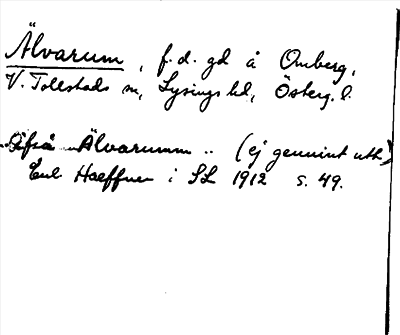 Älvarum, f.d. gd å Omberg,
V. Tollstads sn, Lysings hd, Österg. l.
Älvarumm .. (ej genuint utt.)
Enl Haeffner i SL 1912 s. 49.